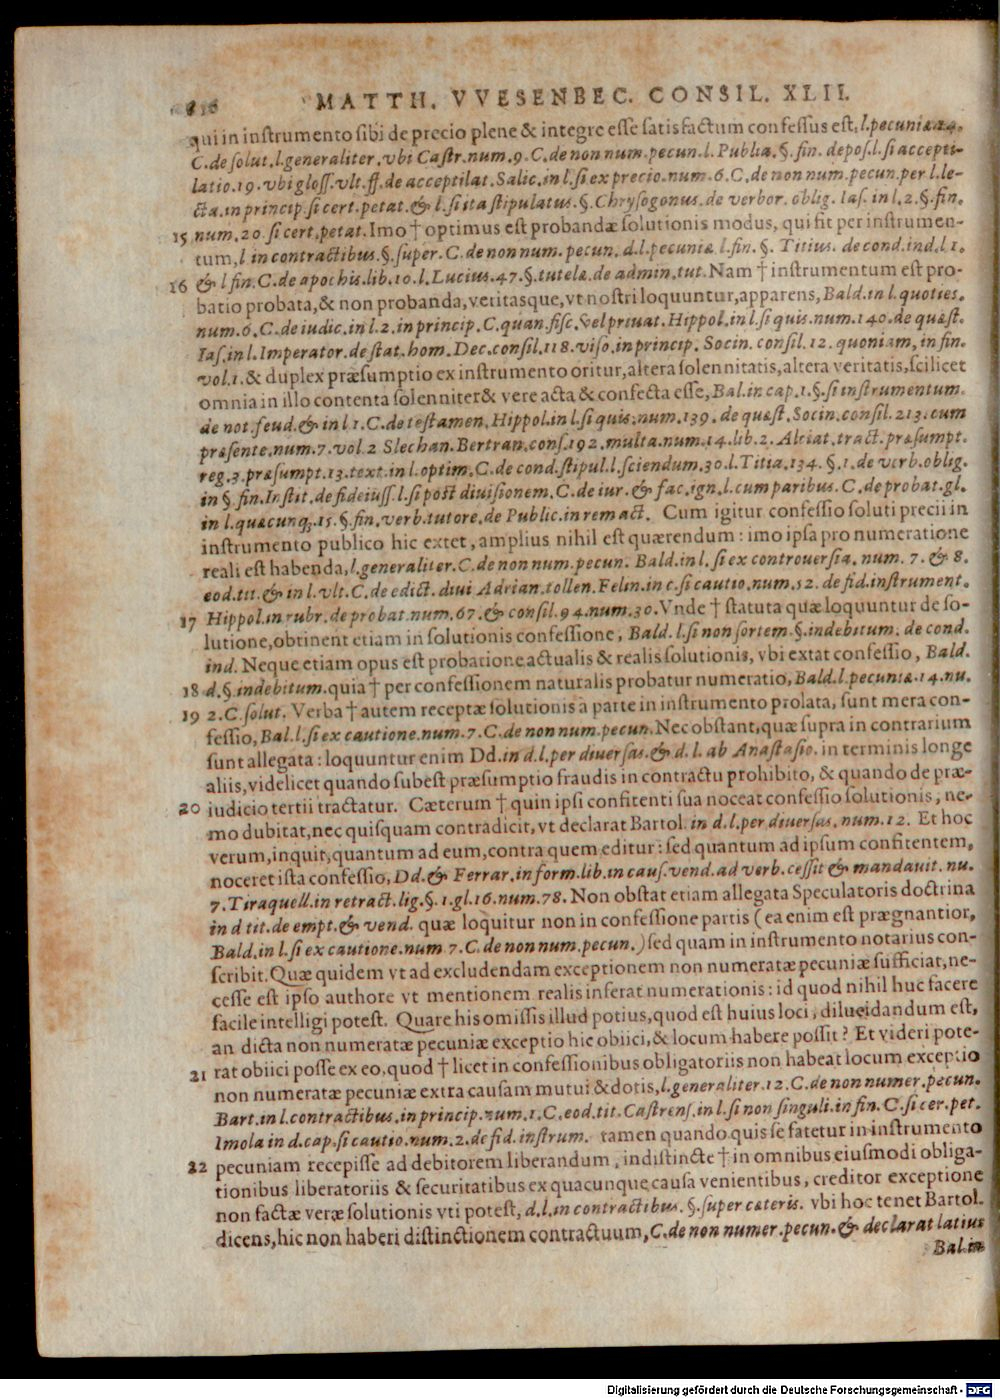 816 MATTH. VVESENBEC. CONSIL. XLII.
qui in instrumento sibi de precio plene & integre esse satisfactum confessus est, l. pecuniæ. 14.
C. de solut. l. generaliter. vbi Castr. num. 9. C. de non num. pecun. l. Publia. §. fin. depos. l. si accepti-
latio. 19. vbi gloss. vlt. ff. de acceptilat. Salic. in l. si ex precio. num. 6. C. de non num. pecun. per l. le-
cta. in princip. si cert. petat. & l. si ita stipulatus. §. Chrysogonus. de verbor. oblig. Ias. in l. 2. §. fin.
15 num. 20. si cert. petat. Imo † optimus est probandæ solutionis modus, qui fit per instrumen-
tum, l in contractibus. §. super. C. de non num. pecun. d. l. pecuniæ l. fin. §. Titius. de cond. ind. l 1.
16 & l fin. C. de apochis. lib. 10. l. Lucius. 47. §. tutelæ. de admin. tut. Nam † instrumentum est pro-
batio probata, & non probanda, veritasque, vt nostri loquuntur, apparens, Bald. in l. quoties.
num. 6. C. de iudic. in l. 2. in princip. C. quan. fisc. vel priuat. Hippol. in l. si quis. num. 140. de quæst.
Ias. in l. Imperator. de stat. hom. Dec. consil. 118. viso. in princip. Socin. consil. 12. quoniam, in fin.
vol. 1. & duplex præsumptio ex instrumento oritur, altera solennitatis, altera veritatis, scilicet
omnia in illo contenta solenniter & vere acta & confecta esse, Bal. in cap. 1. §. si instrumentum.
de not. feud. & in l 1. C. de testamen. Hippol. in l. si quis. num. 139. de quæst. Socin. consil. 213. cum
præsente. num. 7. vol. 2 Slechan. Bertran. cons. 192. multa. num. 14. lib. 2. Alciat. tract. præsumpt.
reg. 3. præsumpt. 13. text. in l. optim. C. de cond. stipul. l. sciendum. 30. l. Titia. 134. §. 1. de verb. oblig.
in §. fin. Instit. de fideiuss. l. si post diuisionem. C. de iur. & fac. ign. l. cum paribus. C. de probat. gl.
in l. quæcunq;. 15. §. fin. verb. tutore. de Public. in rem act. Cum igitur confessio soluti precii in
instrumento publico hic extet, amplius nihil est quærendum: imo ipsa pro numeratione
reali est habenda, l. generaliter. C. de non num. pecun. Bald. in l. si ex controuersia. num. 7. & 8.
eod. tit. & in l. vlt. C. de edict. diui Adrian. tollen. Felin. in c. si cautio. num. 52. de fid. instrument.
17 Hippol. in rubr. de probat. num. 67. & consil. 94. num. 30. Vnde † statuta quæ loquuntur de so-
lutione, obtinent etiam in solutionis confessione, Bald. l. si non sortem. §. indebitum. de cond.
ind. Neque etiam opus est probatione actualis & realis solutionis, vbi extat confessio, Bald.
18 d. §. indebitum. quia † per confessionem naturalis probatur numeratio, Bald. l. pecuniæ. 14. nu.
19 2. C. solut. Verba † autem receptæ solutionis a parte in instrumento prolata, sunt mera con-
fessio, Bal. l. si ex cautione. num. 7. C. de non num. pecun. Nec obstant, quæ supra in contrarium
sunt allegata: loquuntur enim Dd. in d. l. per diuersas. & d. l. ab Anastasio. in terminis longe
aliis, videlicet quando subest præsumptio fraudis in contractu prohibito, & quando de præ-
20 iudicio tertii tractatur. Cæterum † quin ipsi confitenti sua noceat confessio solutionis, ne-
mo dubitat, nec quisquam contradicit, vt declarat Bartol. in d. l. per diuersas. num. 12. Et hoc
verum, inquit, quantum ad eum, contra quem editur: sed quantum ad ipsum confitentem,
noceret ista confessio, Dd. & Ferrar. in form. lib. in caus. vend. ad verb. cessit & mandauit. nu.
7. Tiraquell. in retract. lig. §. 1. gl. 16. num. 78. Non obstat etiam allegata Speculatoris doctrina
in d tit. de empt. & vend. quæ loquitur non in confessione partis (ea enim est prægnantior,
Bald. in l. si ex cautione. num 7. C. de non num. pecun.) sed quam in instrumento notarius con-
scribit. Quæ quidem vt ad excludendam exceptionem non numeratæ pecuniæ sufficiat, ne-
cesse est ipso authore vt mentionem realis inferat numerationis: id quod nihil huc facere
facile intelligi potest. Quare his omissis illud potius, quod est huius loci, dilucidandum est,
an dicta non numeratæ pecuniæ exceptio hic obiici, & locum habere possit? Et videri pote-
21 rat obiici posse ex eo, quod † licet in confessionibus obligatoriis non habeat locum exceptio
non numeratæ pecuniæ extra causam mutui & dotis, l. generaliter. 12. C. de non numer. pecun.
Bart. in l. contractibus. in princip. num. 1. C. eod. tit. Castrens. in l. si non singuli. in fin. C. si cer. pet.
Imola in d. cap. si cautio. num. 2. de fid. instrum. tamen quando quis se fatetur in instrumento
22 pecuniam recepisse ad debitorem liberandum, indistincte † in omnibus eiusmodi obliga-
tionibus liberatoriis & securitatibus ex quacunque causa venientibus, creditor exceptione
non factæ veræ solutionis vti potest, d. l. in contractibus. §. super cæteris. vbi hoc tenet Bartol.
dicens, hic non haberi distinctionem contractuum, C. de non numer. pecun. & declarat latius
Bal. in
Digitalisierung gefördert durch die Deutsche Forschungsgemeinschaft - DFG